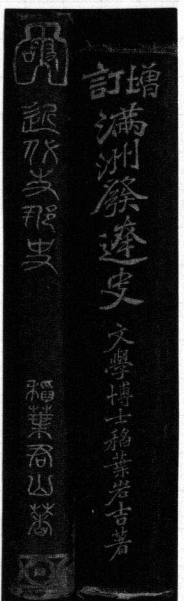 增訂
滿洲發達史
文學博士稻葉岩吉著
近代支那史
稻葉君山著